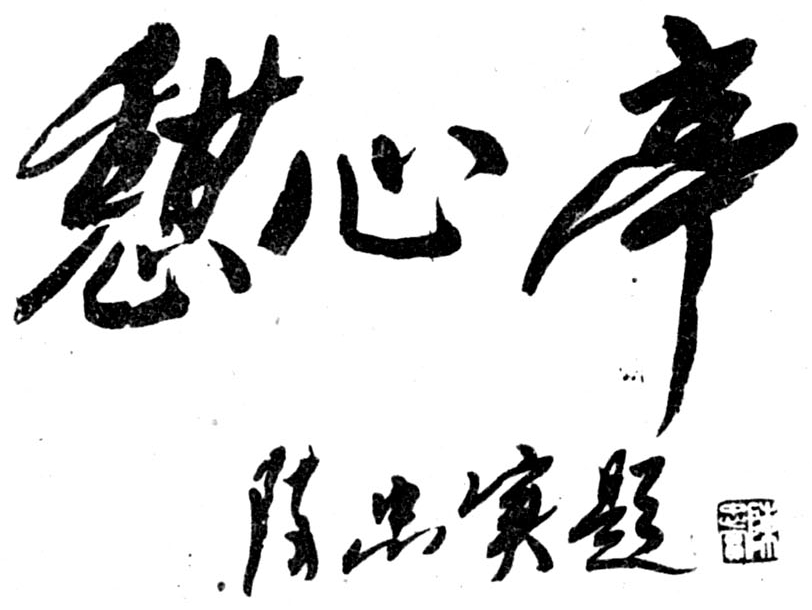 憇心亭
陈忠实题